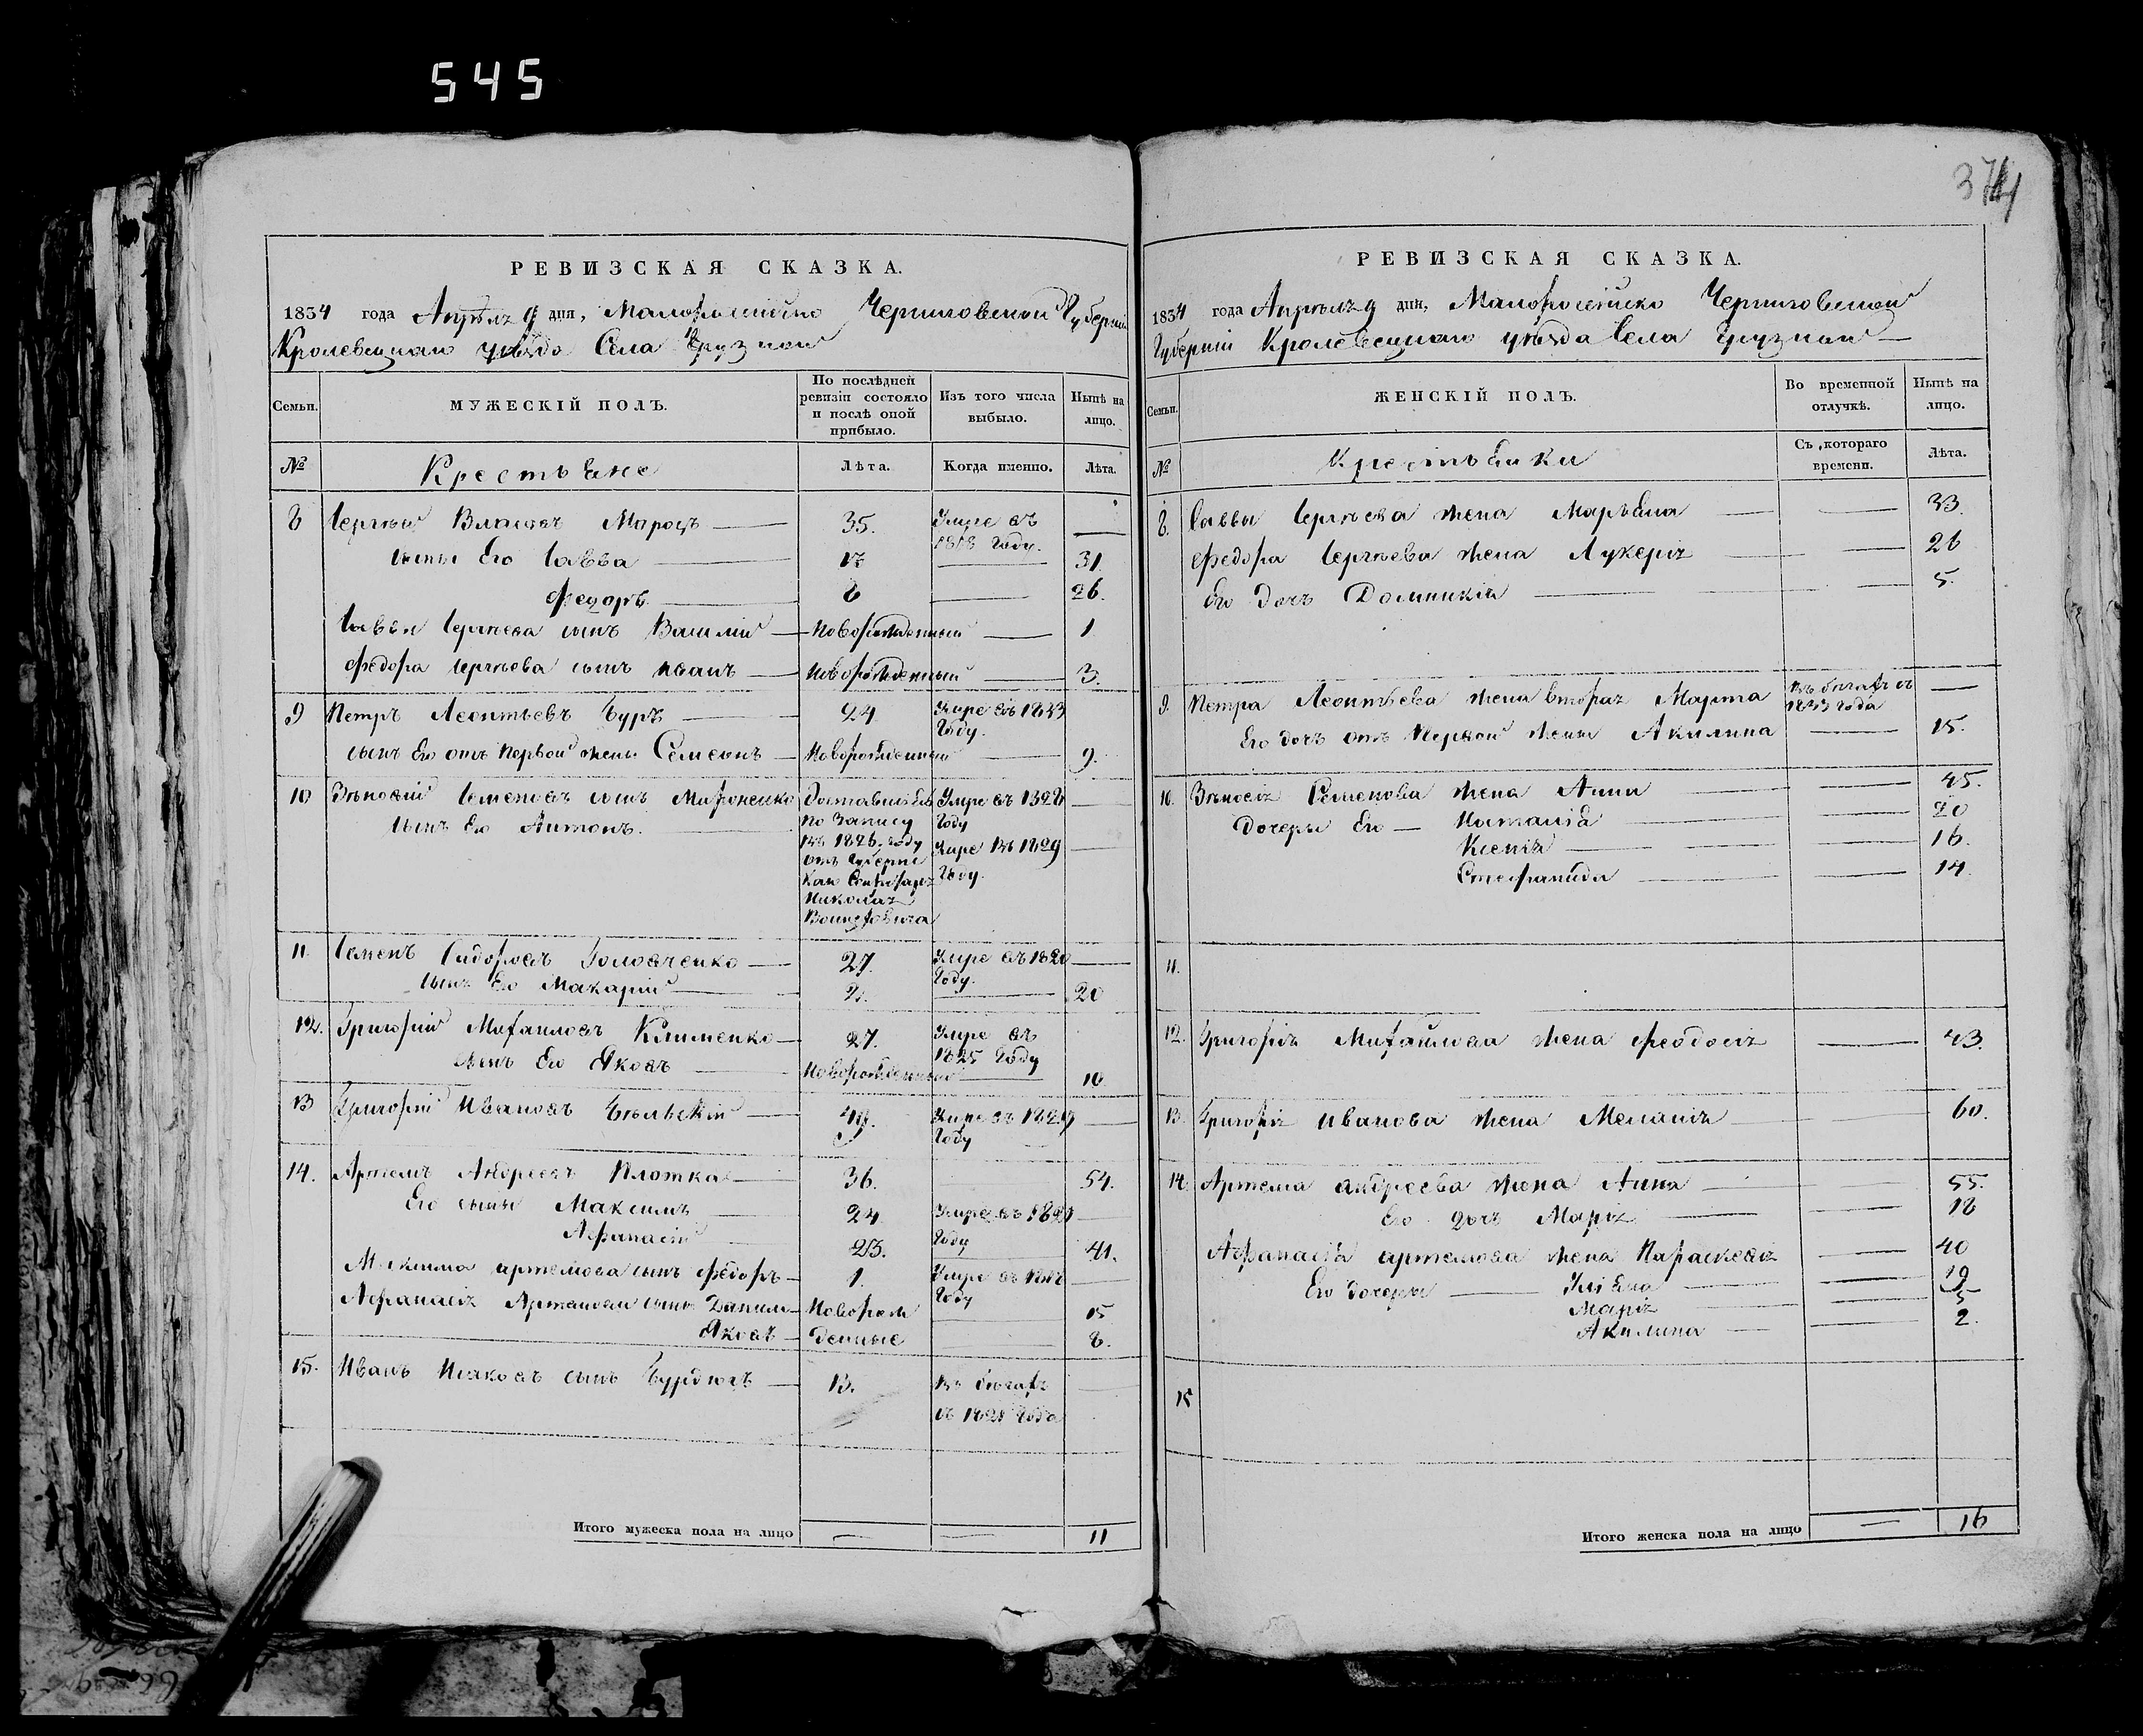 545
374
РЕВИЗСКАЯ СКАЗКА.
1834 года Апрѣля 9 дня, Малороссійско Черниговской Губерніи
Кролевецкаго уѣзда Села Грузкой
Семьи. МУЖЕСКІЙ ПОЛЪ. По послѣдней ревизіи состояло и послѣ оной прибыло. Изъ того числа выбыло. Нынѣ на лицо.
№ Крестьяне Лѣта. Когда именно. Лѣта.
8 Сергѣй Власовъ Мороzъ — 35. Умре въ 1818 году. —
сыны Его Савва — 17 — 31.
Федоръ — 8 — 26.
Саввы Сергѣева сынъ Василій — Новорожденный — 1
Федора Сергѣева сынъ Иванъ — Новорожденный — 3.
9 Петръ Леонтьевъ Буръ — 24 Умре въ 1833 Году.
сынъ Его отъ первой жены Семіонъ — Новорожденный — 9.
10 Семеновъ сынъ Мироненко Доставшійся по Записи въ 1826 году отъ Николая Умре въ 1828 Году —
сынъ Его Антонъ. Умре въ 1829 Году. —
11. Семенъ Сидоровъ Головченко — 27. Умре въ 1820 Году. —
сынъ Его Макарій — 2. — 20
12. Григорій Михайловъ Клименко — 27. Умре въ 1825 Году
сынъ Его Яковъ — Новорожденный — 10
13 Григорій Ивановъ Бѣльскій — Умре въ 1829 Году —
14. Артемъ Андреевъ Плотка — 36. 54.
Его сыны Максимъ — 24 Умре въ 1821 Году —
Афанасій — 23. — 41.
Максима Артемова сынъ Федоръ — 1. Умре въ 1818 Году —
Афанасія Артемова сыны Данило — Новорож — 15
Яковъ — денные — 8.
15. Иванъ Исаковъ сынъ Бурдюгъ — 13. Въ бѣгахъ съ 1821 Года —
Итого мужеска пола на лицо — — 11
РЕВИЗСКАЯ СКАЗКА.
1834 года Апрѣля 9 дня, Малоросійско Черниговской
Губерніи Кролевецкаго уѣзда Села Грузкой —
Семьи. ЖЕНСКІЙ ПОЛЪ. Во временной отлучкѣ. Нынѣ на лицо.
№ Крестьянки Съ котораго времени. Лѣта.
8. Саввы Сергѣева жена Марьяна — — 33.
Федора Сергѣева жена Лукерія — — 26
Его дочь Домникія — — 5.
9. Петра Леонтьева жена вторая Марта Въ бѣгахъ съ 1833 года —
Его дочь отъ первой жены Акилина — 15.
10. Семенова жена Анна — — 45.
Дочери Его — Наталія — — 20
Ксенія — — 16.
Стефанида — — 14.
11.
12. Григорія Михайлова жена Феодосія — 43.
13. Григорія Иванова жена Меланія — — 60.
14. Артема Андреева жена Анна — — 55.
Его дочь Марія — — 18
Афанасія Артемова жена Параскевія — 40
Его дочери — Уліяна — —
Марія — 5
Акилина — — 2.
15
Итого женска пола на лицо — 16